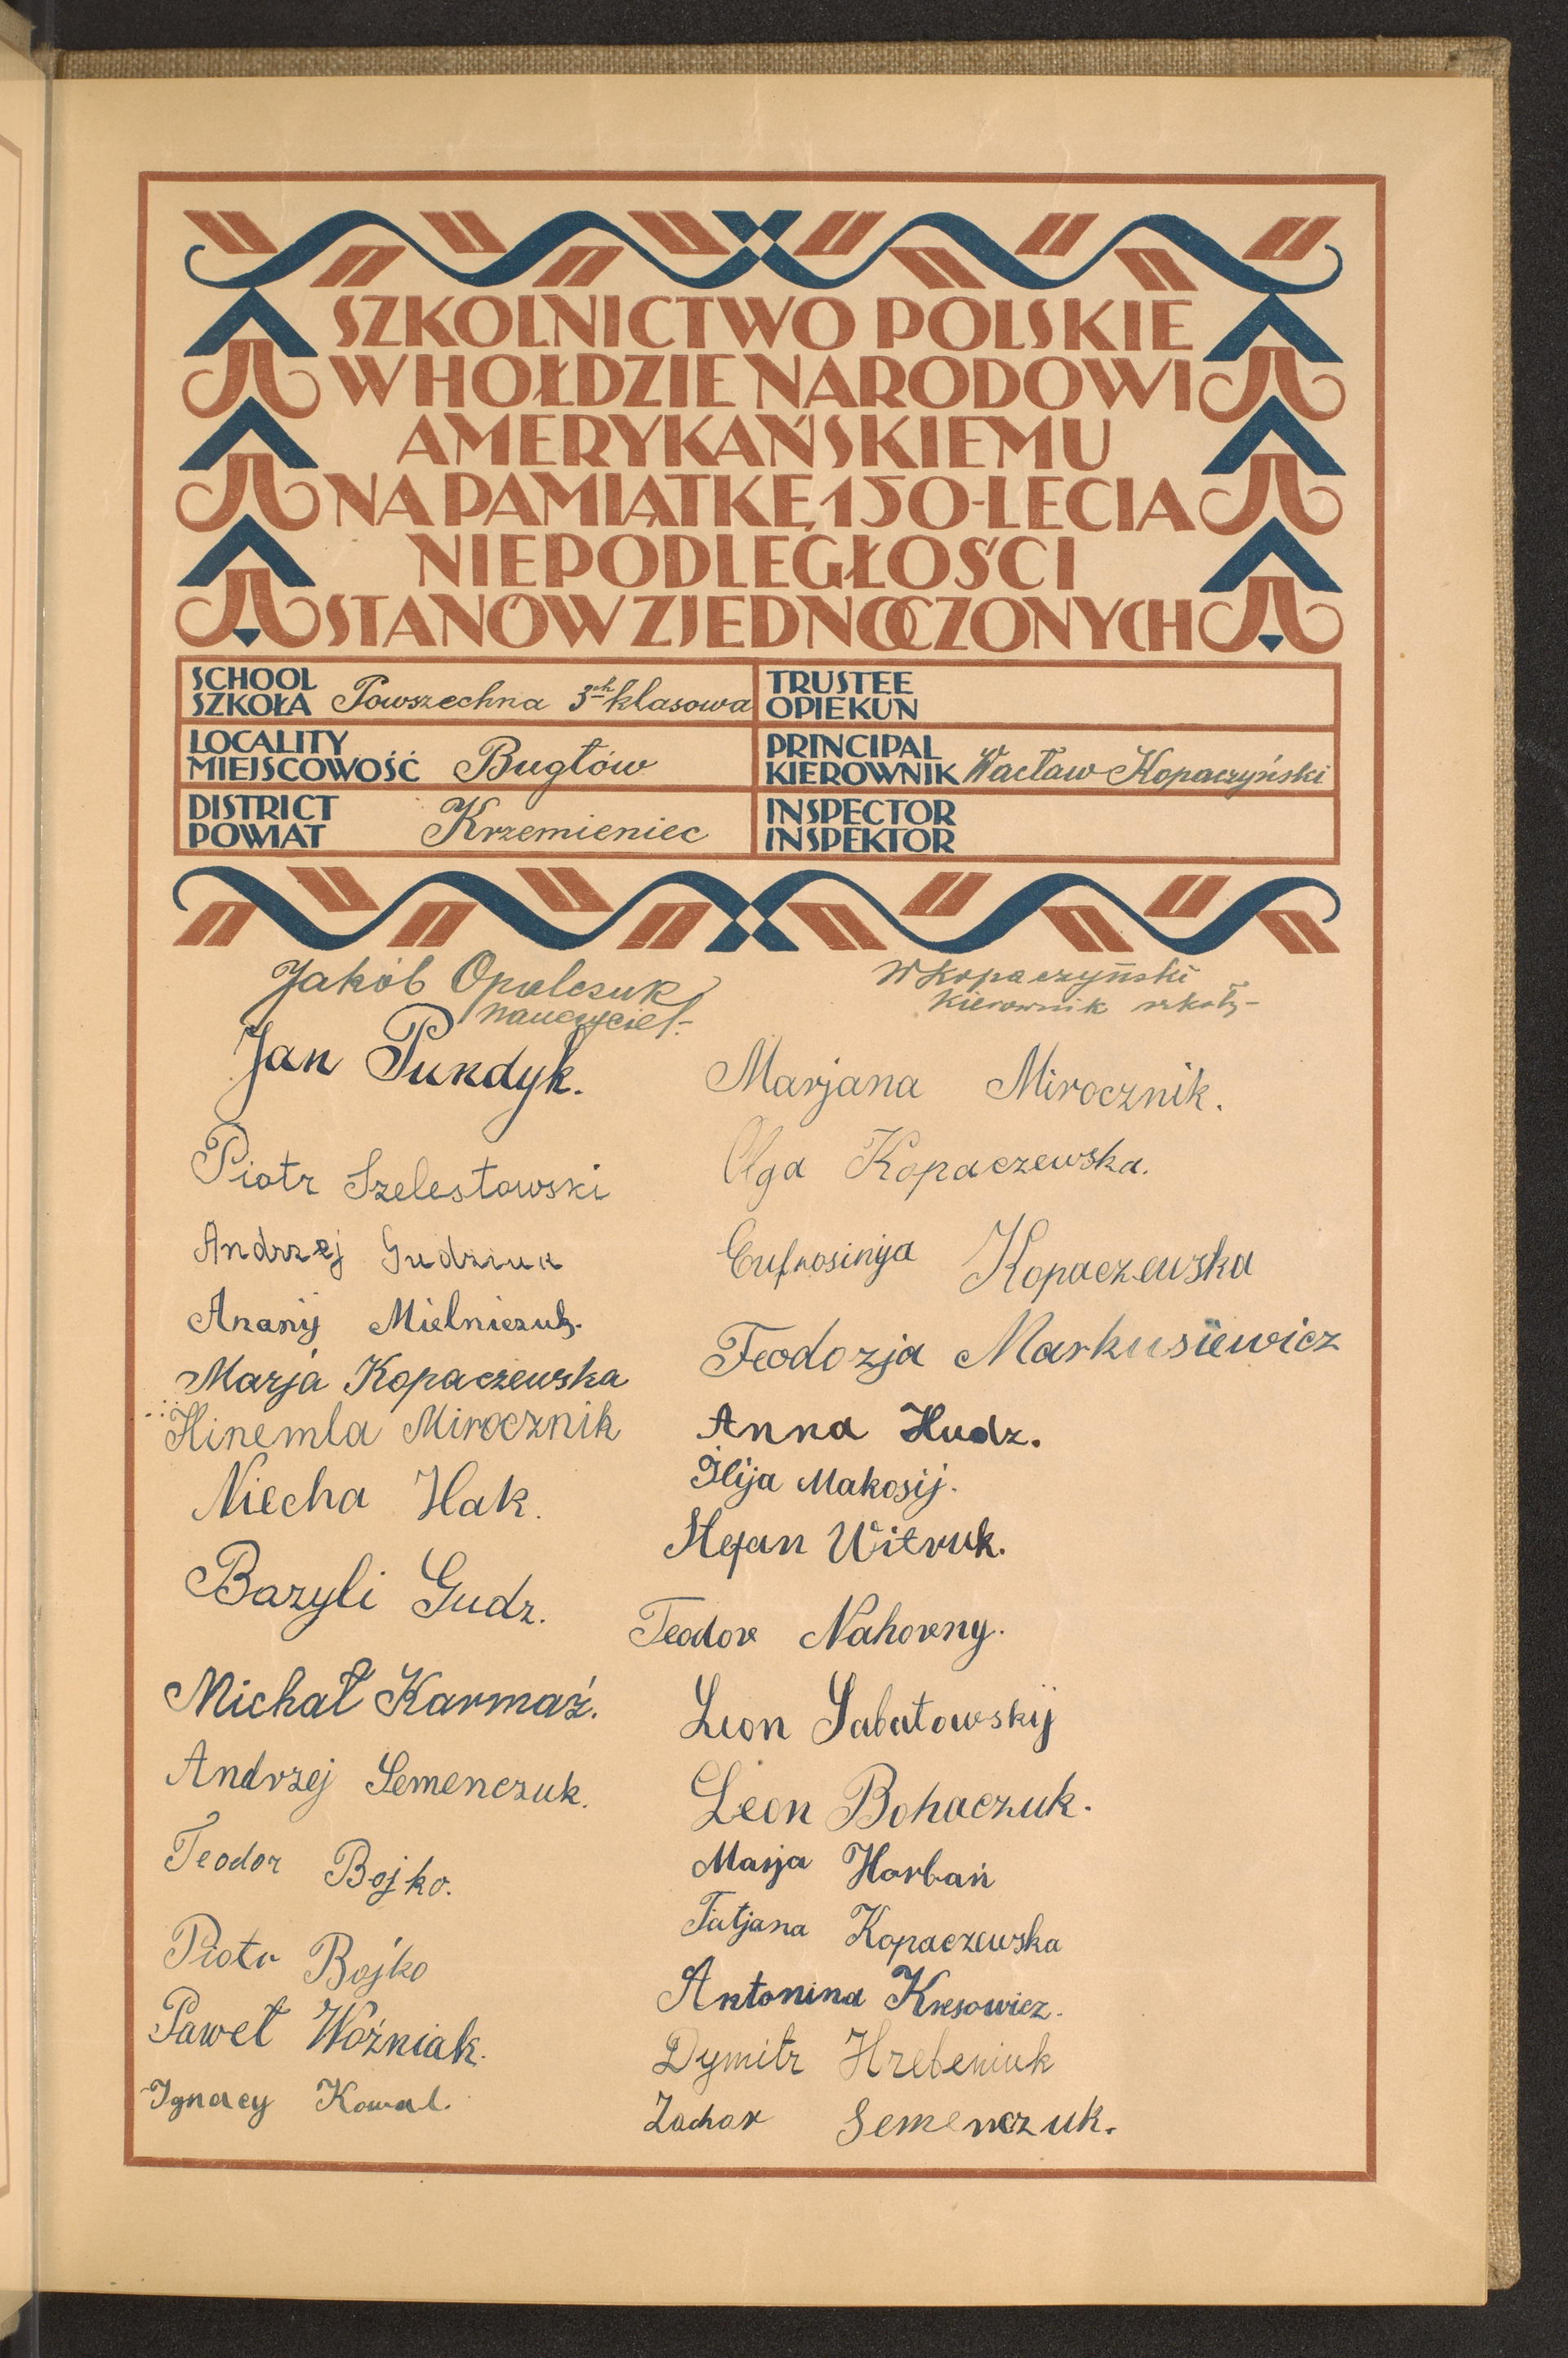 SZKOLNICTWO POLSKIE
W HOŁDZIE NARODOWI
AMERYKAŃSKIEMU
NA PAMIĄTKĘ 150-LECIA
NIEPODLEGŁOŚCI
STANÓW ZJEDNOCZONYCH
SCHOOL
SZKOŁA Powszechna 3ch klasowa
TRUSTEE
OPIEKUN
LOCALITY
MIEJSCOWOŚĆ Bugłów
PRINCIPAL
KIEROWNIK Wacław Kopaczyński
DISTRICT
POWIAT Krzemieniec
INSPECTOR
INSPEKTOR
Jakób Opalczuk
nauczyciel.
WKopaczyński
Kierownik szkoły
Jan Pundyk.
Piotr Szelestowski
Andrzej Gudziuk
Ananij Mielniczuk.
Marja Kopaczewska
Hinemla Mirocznik
Niecha Hak.
Bazyli Gudz.
Michał Karmaź.
Andrzej Semenczuk.
Teodor Bojko.
Piotr Bojko
Paweł Woźniak.
Ignacy Kowal.
Marjana Mirocznik.
Olga Kopaczewska.
Eufrosinija Kopaczewska
Teodozja Markusiewicz
Anna Hudz.
Ilija Makosij.
Stefan Witruk.
Teodor Nahorny.
Leon Sabatowskij
Leon Bohaczuk.
Marja Horbań
Tatjana Kopaczewska
Antonina Kresowicz.
Dymitr Hrebeniuk
Zachar Semenczuk.